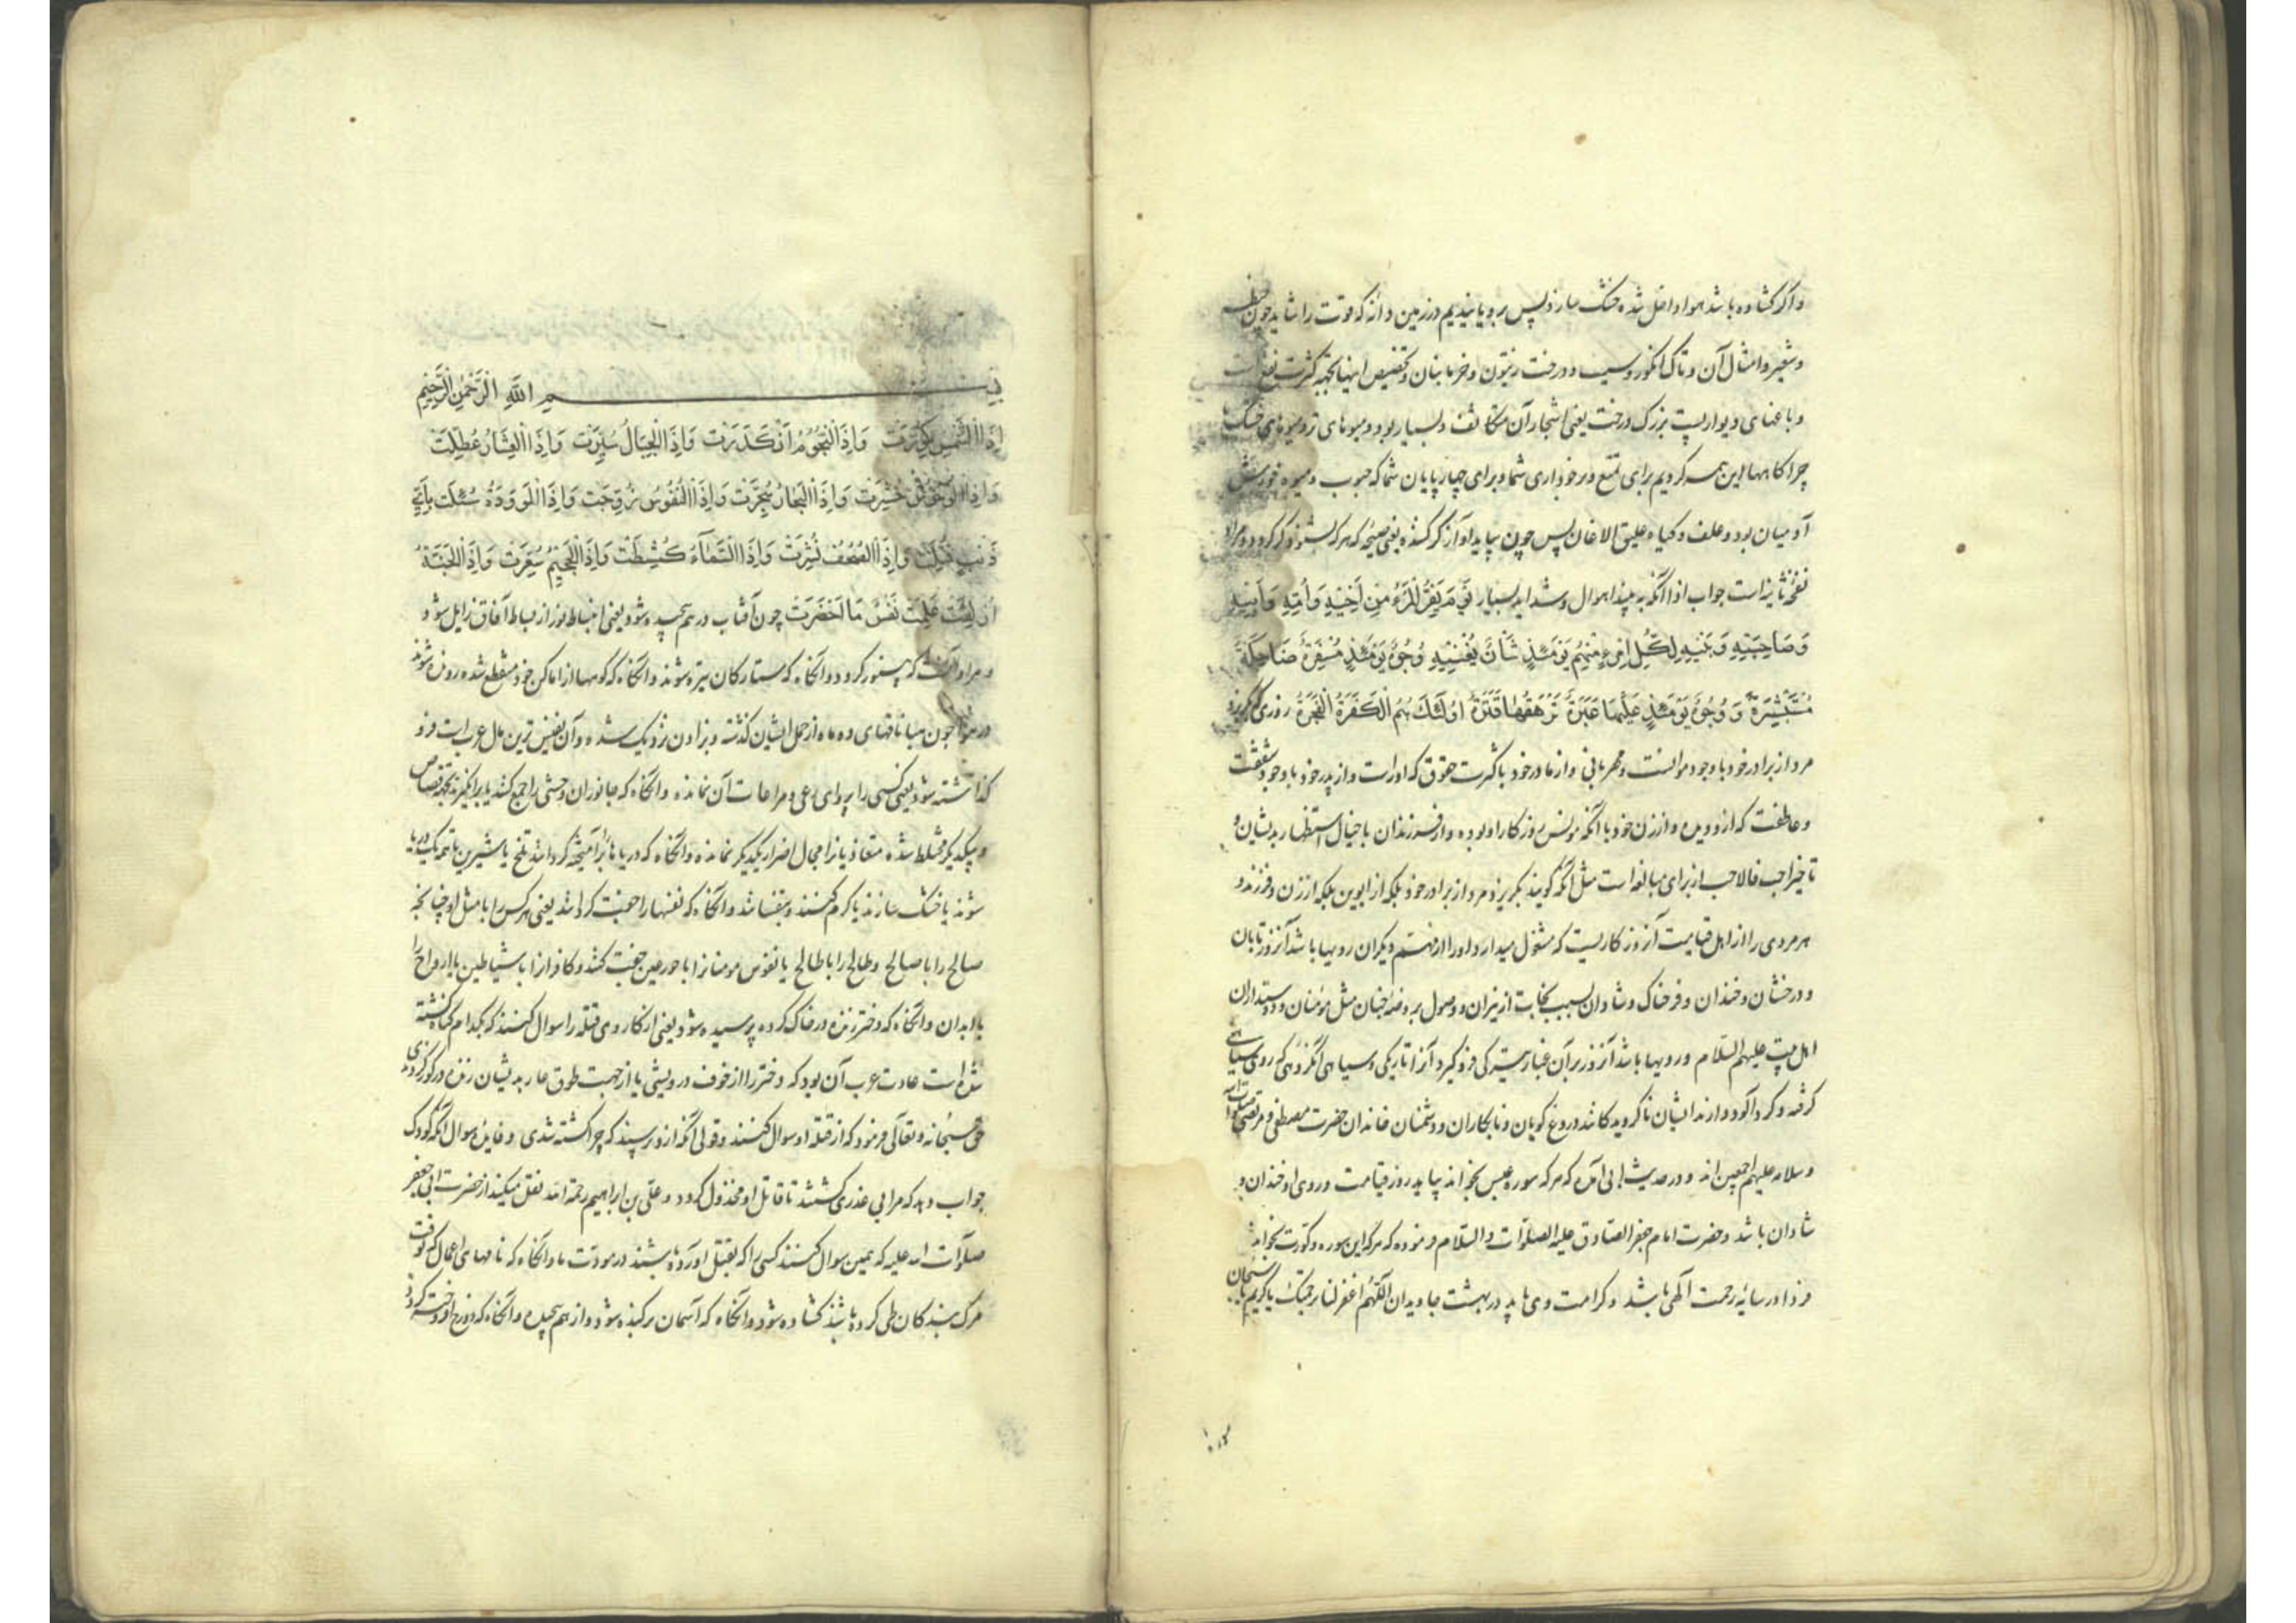 واکر کشاده باشد هوا داخل شده خشک سازد پس برویانیدیم در زمین دانه که قوت را شاید چون حنطه
وشعیر وامثال آن وتاک انکور وسیب ودرخت زیتون وخرما بنان وتخصیص اینها بجهة کثرت نفع است
وباغهای دیوار بست بزرک درخت یعنی اشجار آن متکاثف وبسیار بود ومیوهای تر ومیوهای خشک یا
چراکاهها این همه کردیم برای تمتع وبرخورداری شما وبرای چهارپایان شما که حبوب ومیوه خورش
آدمیان بود وعلف وکیاه علیق الاغان پس چون بیاید آواز کر کننده یعنی صیحه که هر که بشنود کر کردد ومراد
نفخهٔ ثانیه است جواب اذا آنکه به بیند اهوال وشداید بسیار یَوْمَ یَفِرُّ الْمَرْءُ مِنْ اَخِیْهِ وَاُمِّهِ وَاَبِیْهِ
وَصَاحِبَتِهِ وَبَنِیْهِ لِکُلِّ امْرِیٍٔ مِنْهُمْ یَوْمَئِذٍ شَأْنٌ یُغْنِیْهِ وُجُوْهٌ یَوْمَئِذٍ مُسْفِرَةٌ ضَاحِکَةٌ
مُسْتَبْشِرَةٌ وَوُجُوْهٌ یَوْمَئِذٍ عَلَیْهَا غَبَرَةٌ تَرْهَقُهَا قَتَرَةٌ اُولٰئِکَ هُمُ الْکَفَرَةُ الْفَجَرَةُ روزی که بکریزد
مرد از برادر خود با وجود موانست ومهربانی واز مادر خود با کثرت حقوق که اوراست واز پدر خود با وجود شفقت
وعاطفت که ازو دیده واز زن خود با آنکه مونس روزکار او بوده واز فرزندان با خیال استظهار بدیشان و
تاخیر احب فالاحب از برای مبالغه است مثل آنکه کویند بکریزد مرد از برادر خود بلکه از ابوین بلکه از زن وفرزند و
هر مردی را از اهل قیامت آنروز کاریست که مشغول میدارد اورا از مهتم دیکران رویها باشد آنروز تابان
ودرخشان وخندان وفرحناک وشادان بسبب نجابت از نیران ووصول بروضهٔ جنان مثل مومنان ودوستداران
اهل بیت علیهم السّلام ورویها باشد آنروز بر آن غبار تیرکی فرو کیرد آنرا تاریکی وسیاهی آنکروهی که روی سیاهی
کرفته وکرد آلود دارند ایشان ناکرویدکانند دروغ کویان ونابکاران ودشمنان خاندان حضرت مصطفی ومرتضی صلوات الله
وسلامه علیهم اجمعین اند ودر حدیث ابی آمده که هر که سوره عبس بخواند بیاید روز قیامت وروی او خندان و
شادان باشد وحضرت امام جعفر الصّادق علیه الصلوات والسّلام فرموده که هر که این سوره وکورت بخواند
فردا در سایهٔ رحمت آلهی باشد وکرامت وی یابد در بهشت جاویدان اللّهم اغفر لنا برحمتک یا کریم یا سبحان
بســـم اللّٰهِ الرَّحْمٰنِ الرَّحِیْمِ
اِذَا الشَّمْسُ کُوِّرَتْ وَاِذَا النُّجُوْمُ انْکَدَرَتْ وَاِذَا الْجِبَالُ سُیِّرَتْ وَاِذَا الْعِشَارُ عُطِّلَتْ
وَاِذَا الْوُحُوْشُ حُشِرَتْ وَاِذَا الْبِحَارُ سُجِّرَتْ وَاِذَا النُّفُوْسُ زُوِّجَتْ وَاِذَا الْمَوْؤُدَةُ سُئِلَتْ بِاَیِّ
ذَنْبٍ قُتِلَتْ وَاِذَا الصُّحُفُ نُشِرَتْ وَاِذَا السَّمَآءُ کُشِطَتْ وَاِذَا الْجَحِیْمُ سُعِّرَتْ وَاِذَا الْجَنَّةُ
اُزْلِفَتْ عَلِمَتْ نَفْسٌ مَا اَحْضَرَتْ چون آفتاب درهم پیچیده شود یعنی انبساط نور از بساط آفاق زایل شود
ومراد آنست که بی نور کردد وانکاه که ستارکان تیره شوند وانکاه که کوهها از اماکن خود منقطع شده روند شوند
در هوا چون هبا ناقهای ده ماه از حمل ایشان کذشته وبزادن نزدیک شده وآن نفیس ترین مال عرب است فرو
کذاشته شود یعنی کسی را پروای رعی ومراعات آن نمانده وانکاه که جانوران وحشی را جمع کنند یا برانکیزند بجهة قصاص
وبیکدیکر مختلط شده متعادیانرا مجال اضرار یکدیکر نمانده وانکاه که دریاها بر آمیخته کردانند تلخ با شیرین تا همه یک دریا
شوند یا خشک سازند یا کرم کنند وبتفسانند وانکاه که نفسها را جفت کردانند یعنی هر کس را با مثل او چنانچه
صالح را با صالح وطالح را با طالح یا نفوس مومنانرا با حور عین جفت کنند وکافرانرا با شیاطین یا ارواح را
با ابدان وانکاه که دختر زنده در خاک کرده پرسیده شود یعنی از کار وی قتله را سوال کنند که بکدام کناه کشته
شده است عادت عرب آن بود که دختر را از خوف درویشی یا از جهت طوق عار بدیشان زنده در کور کردندی
حق سبحانه وتعالی فرمود که از قتله او سوال کنند وقولی آنکه ازو پرسند که چرا کشته شدی وفایدهٔ سوال آنکه کودک
جواب دهد که مرا بی عذری کشتند تا قاتل او مخذول کردد وعلی بن ابراهیم رحمة الله نقل میکند از حضرت ابی جعفر
صلوات الله علیه که یعنی سوال کنند کسی را که بقتل آورده باشند در مودت ما وانکاه که نامهای اعمال که وقت
مرک بندکان طی کرده باشند کشاده شود وانکاه که آسمان برکنده شود واز هم پیچیده وانکاه که دوزخ افروخته کردد